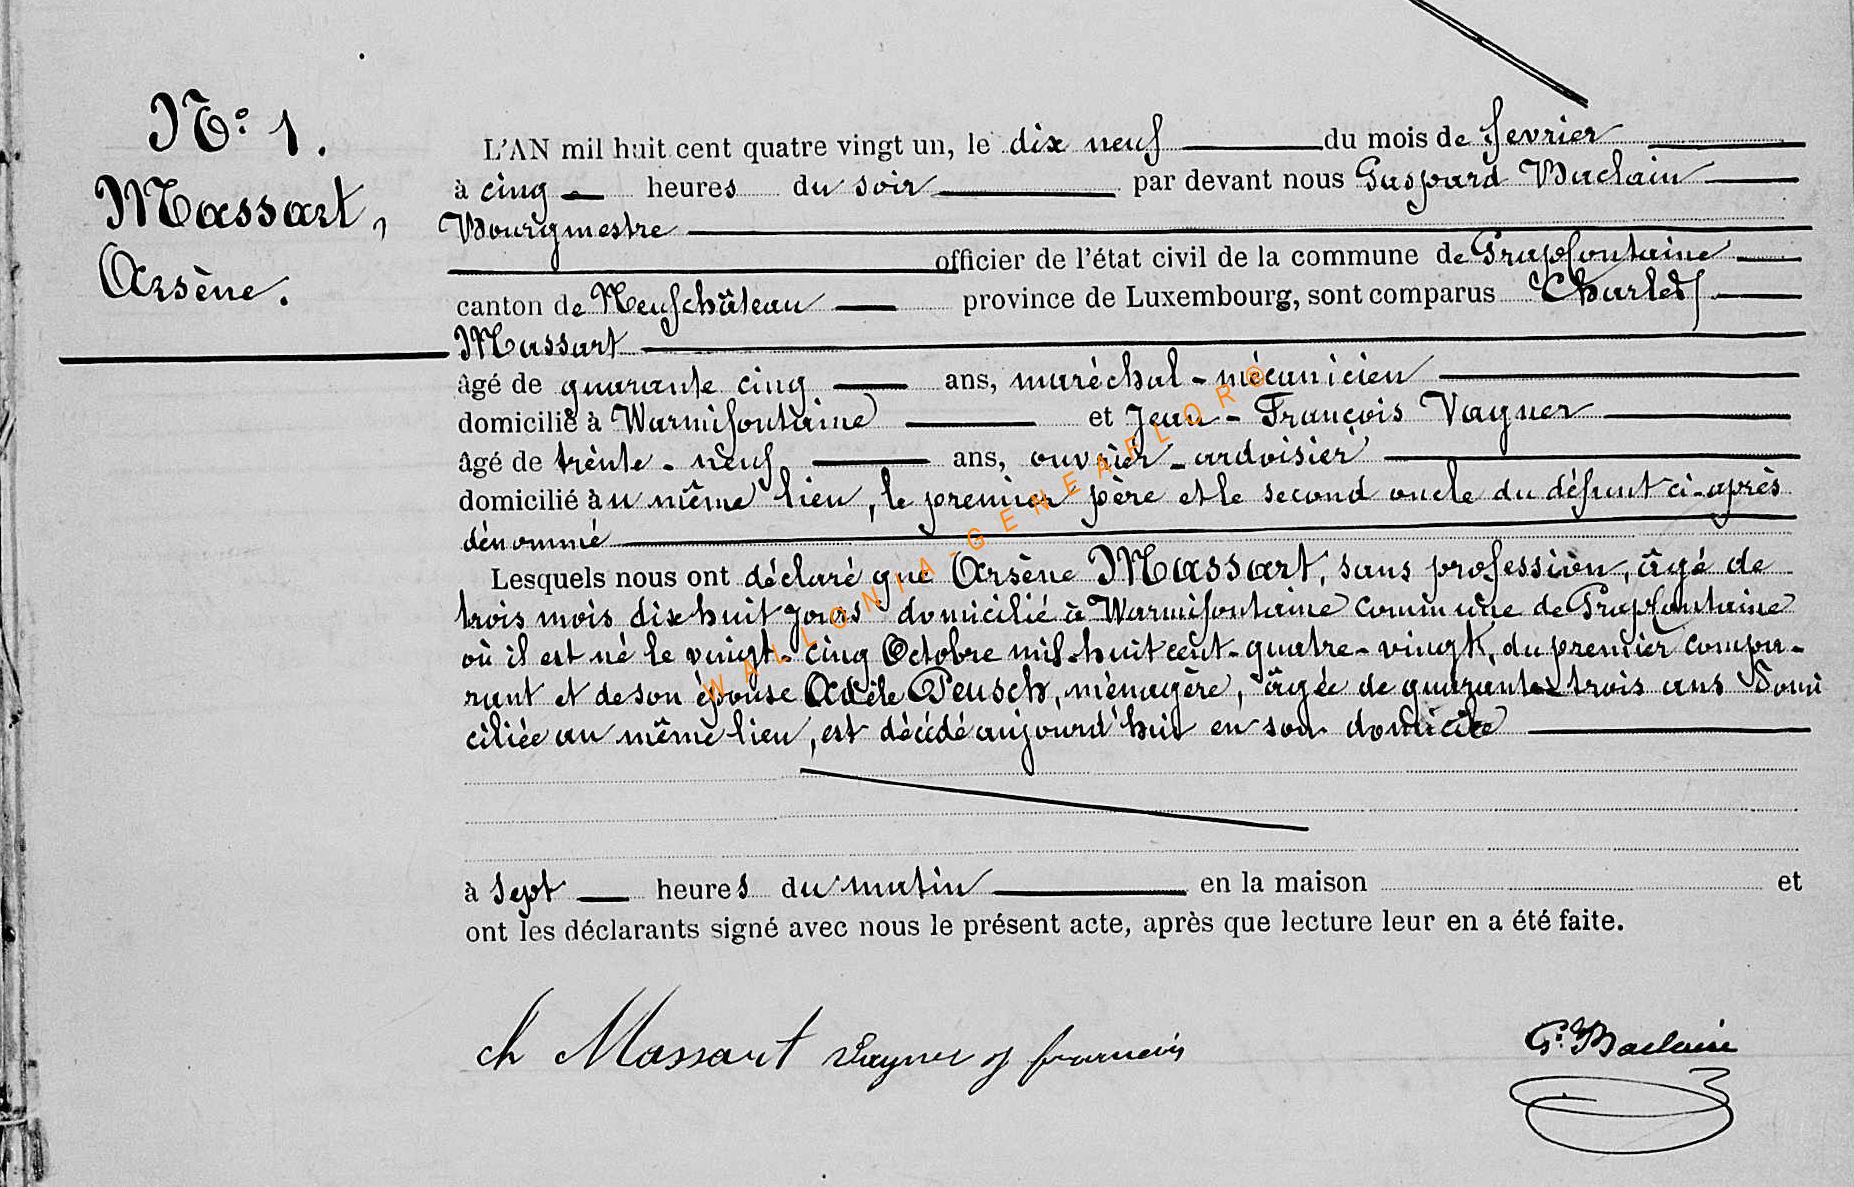 N° 1.
Massart,
Arsène.
L'AN mil huit cent quatre vingt un, le dix neuf du mois de fevrier
à cinq heures du soir par devant nous Gaspard Baclain
Bourgmestre
officier de l'état civil de la commune de Grapfontaine
canton de Neufchâteau province de Luxembourg, sont comparus Charles
Massart
âgé de quarante cinq ans, maréchal-mécanicien
domicilié à Warmifontaine et Jean-François Vagner
âgé de trente-neuf ans, ouvrier-ardoisier
domicilié au même lieu, le premier père et le second oncle du défunt ci-après
dénommé
Lesquels nous ont déclaré que Arsène Massart, sans profession, âgé de
trois mois dix huit jours domicilié à Warmifontaine commune de Grapfontaine
où il est né le vingt-cinq Octobre mil-huit cent-quatre-vingt, du premier compa-
rant et de son épouse Adèle Peusch, ménagère, âgée de quarante trois ans Domi
ciliée au même lieu, est décédé aujourd'hui en son domicile
à sept heures du matin en la maison et
ont les déclarants signé avec nous le présent acte, après que lecture leur en a été faite.
ch Massart Vagner j francois
G. Baclain
WALLONIA-GENEAFLOR©